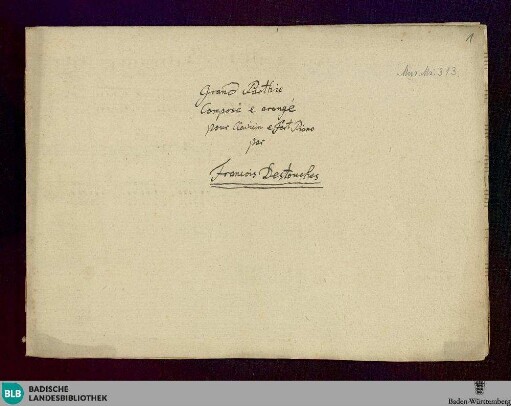 1
Mus. Ms. 313
Grand Parthie
Composé e arangé
pour Clavicim e Fort Piano
par
Francois Destouches
BLB
BADISCHE
LANDESBIBLIOTHEK
Baden-Württemberg